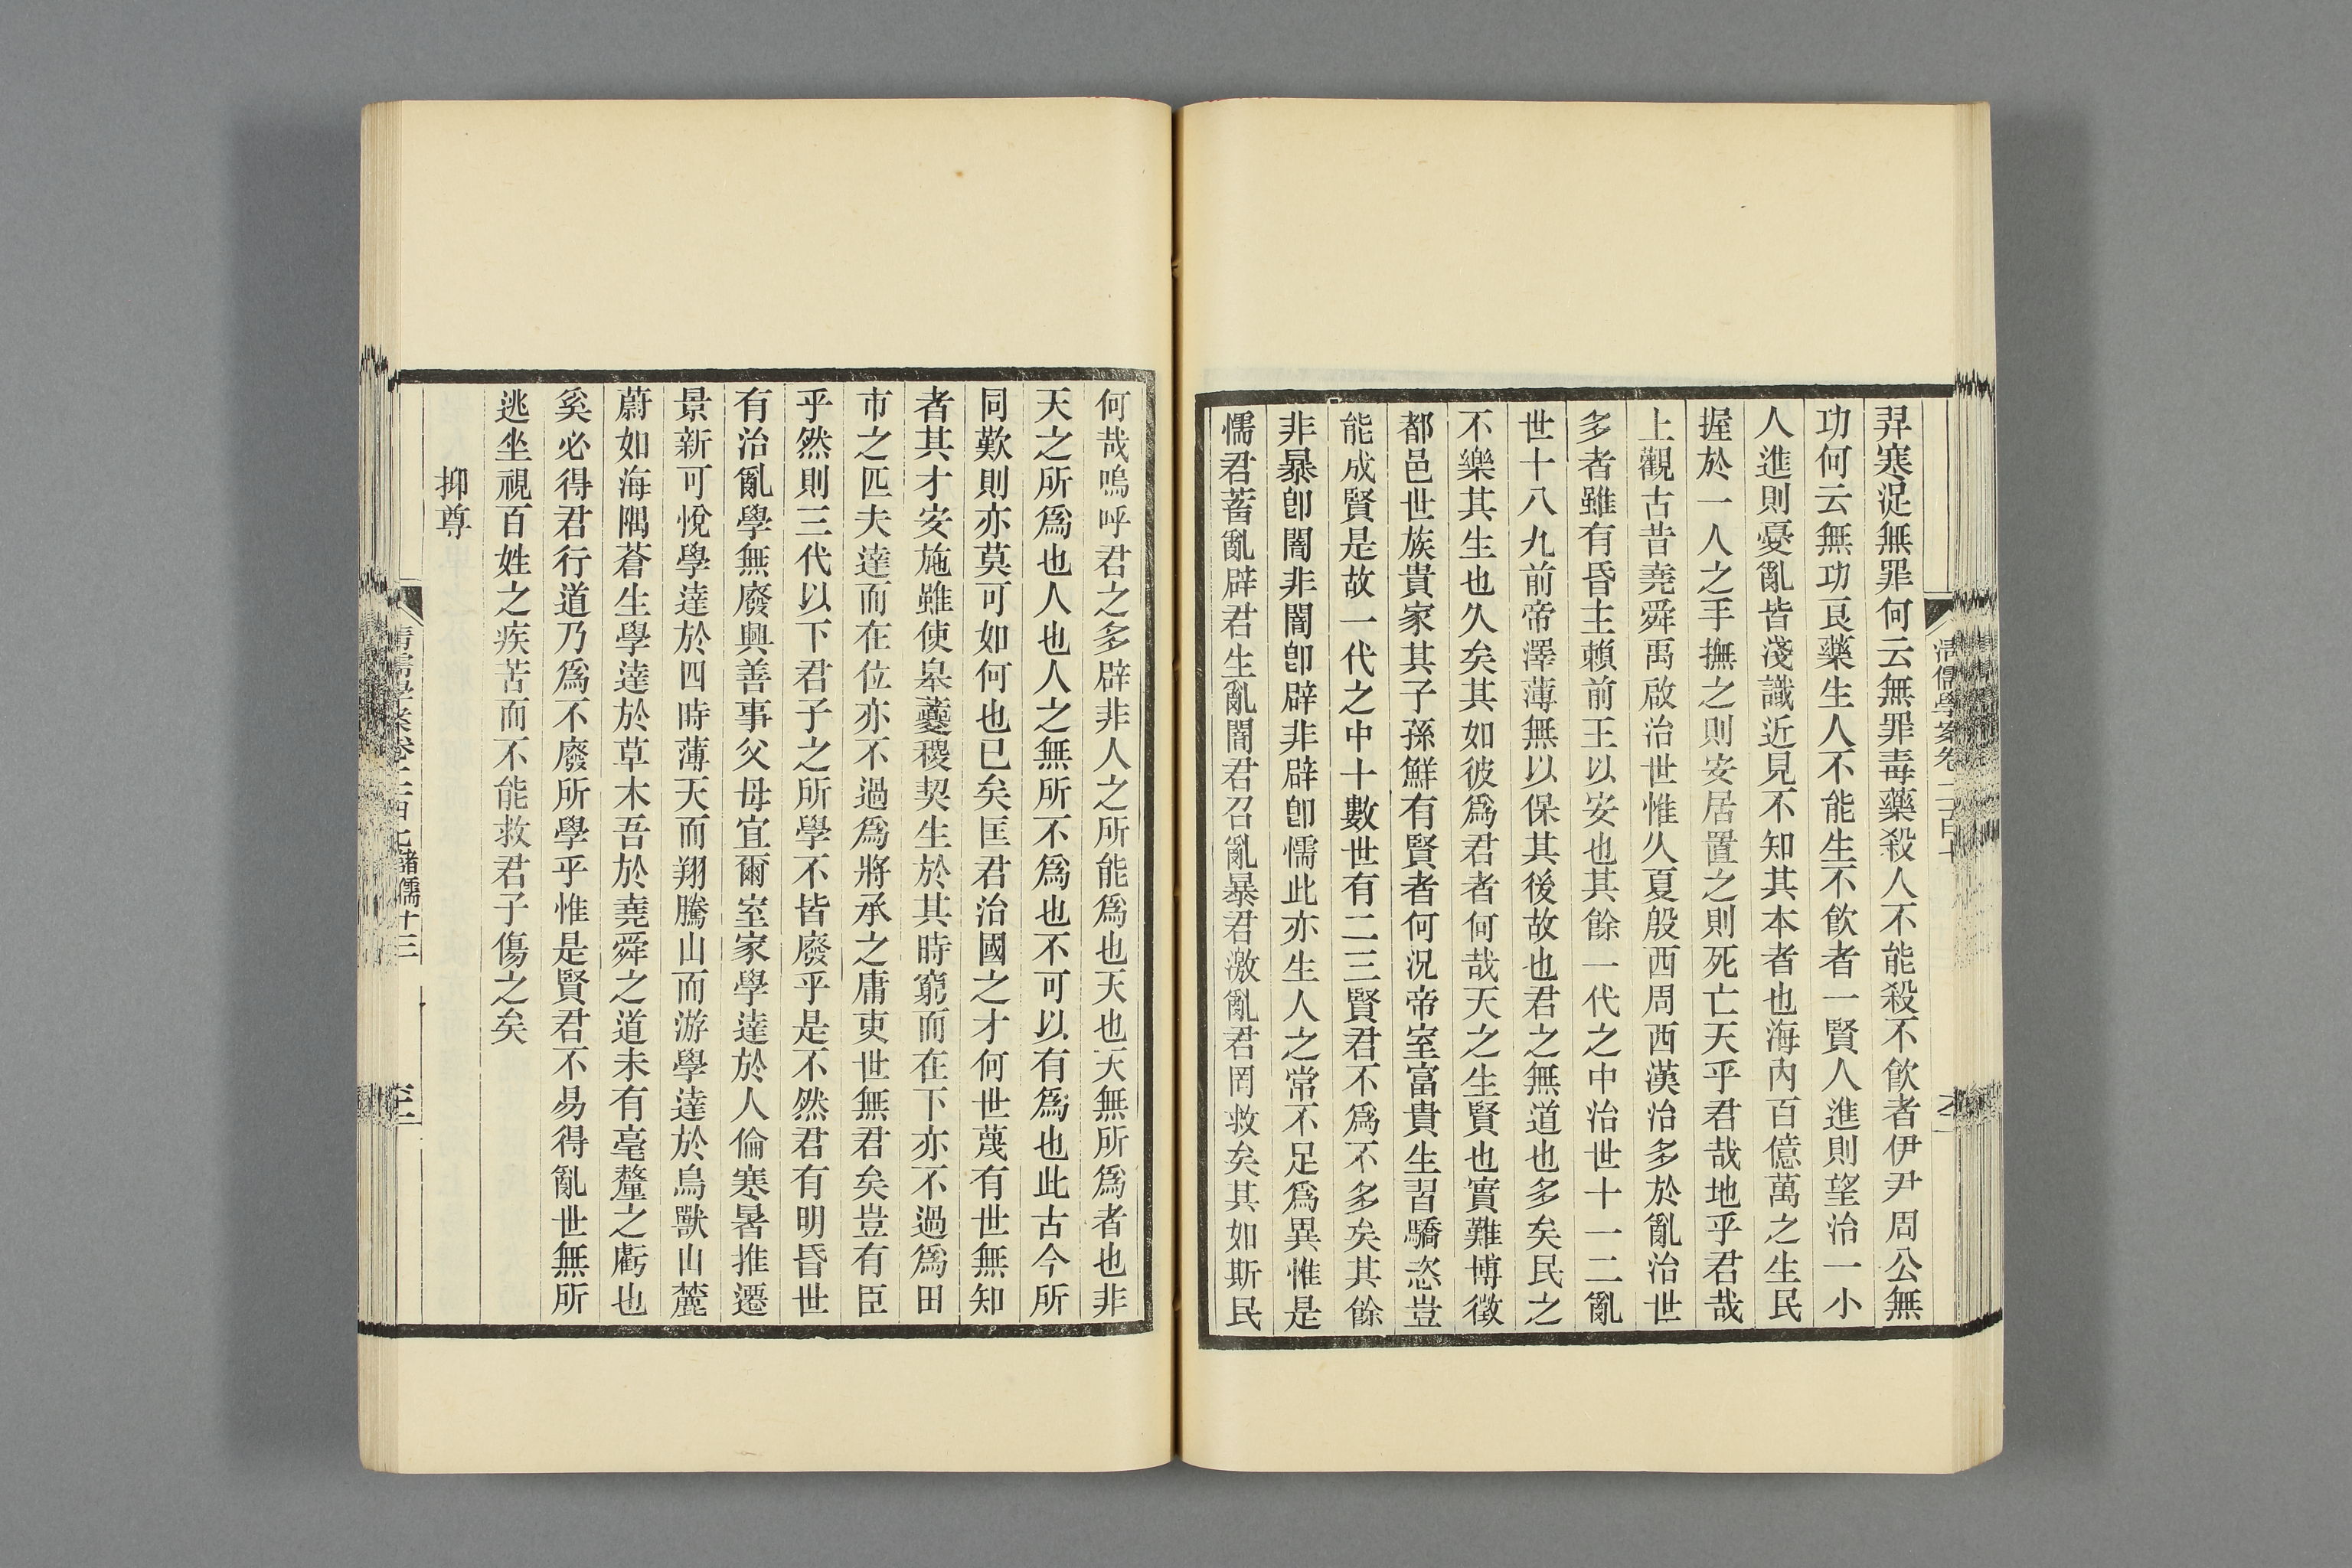 清儒學案卷二百七
羿寒浞無罪何云無罪毒藥殺人不能殺不飮者伊尹周公無
功何云無功良藥生人不能生不飮者一賢人進則望治一小
人進則憂亂皆淺識近見不知其本者也海內百億萬之生民
握於一人之手撫之則安居置之則死亡天乎君哉地乎君哉
上觀古昔堯舜禹啟治世惟久夏殷西周西漢治多於亂治世
多者雖有昏主賴前王以安也其餘一代之中治世十一二亂
世十八九前帝澤薄無以保其後故也君之無道也多矣民之
不樂其生也久矣其如彼爲君者何哉天之生賢也實難博徵
都邑世族貴家其子孫鮮有賢者何況帝室富貴生習驕恣豈
能成賢是故一代之中十數世有二三賢君不爲不多矣其餘
非暴卽闇非闇卽辟非辟卽懦此亦生人之常不足爲異惟是
懦君蓄亂辟君生亂闇君召亂暴君激亂君罔救矣其如斯民
何哉嗚呼君之多辟非人之所能爲也天也天無所爲者也非
天之所爲也人也人之無所不爲也不可以有爲也此古今所
同歎則亦莫可如何也已矣匡君治國之才何世蔑有世無知
者其才安施雖使皋夔稷契生於其時窮而在下亦不過爲田
市之匹夫達而在位亦不過爲將承之庸吏世無君矣豈有臣
乎然則三代以下君子之所學不皆廢乎是不然君有明昏世
有治亂學無廢興善事父母宜爾室家學達於人倫寒暑推遷
景新可悅學達於四時薄天而翔騰山而游學達於鳥獸山麓
蔚如海隅蒼生學達於草木吾於堯舜之道未有毫釐之虧也
奚必得君行道乃爲不廢所學乎惟是賢君不易得亂世無所
逃坐視百姓之疾苦而不能救君子傷之矣
抑尊
諸儒十三